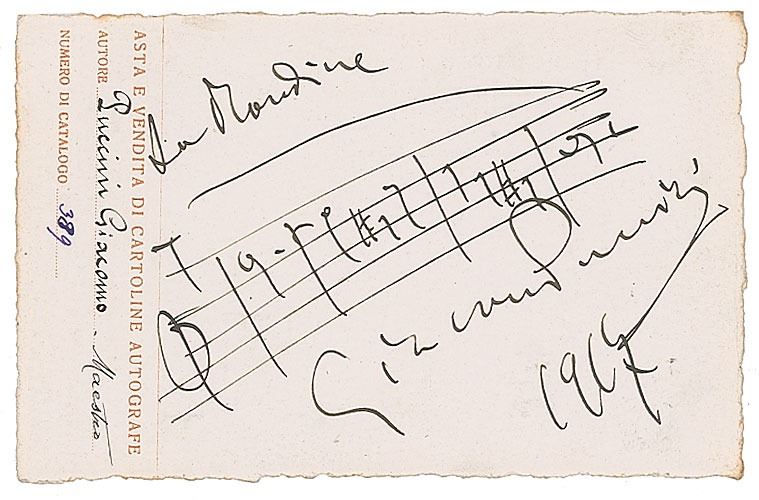 ASTA E VENDITA DI CARTOLINE AUTOGRAFE
AUTORE Puccini Giacomo - Maestro
NUMERO DI CATALOGO 389
La Rondine
Giacomo Puccini
1917